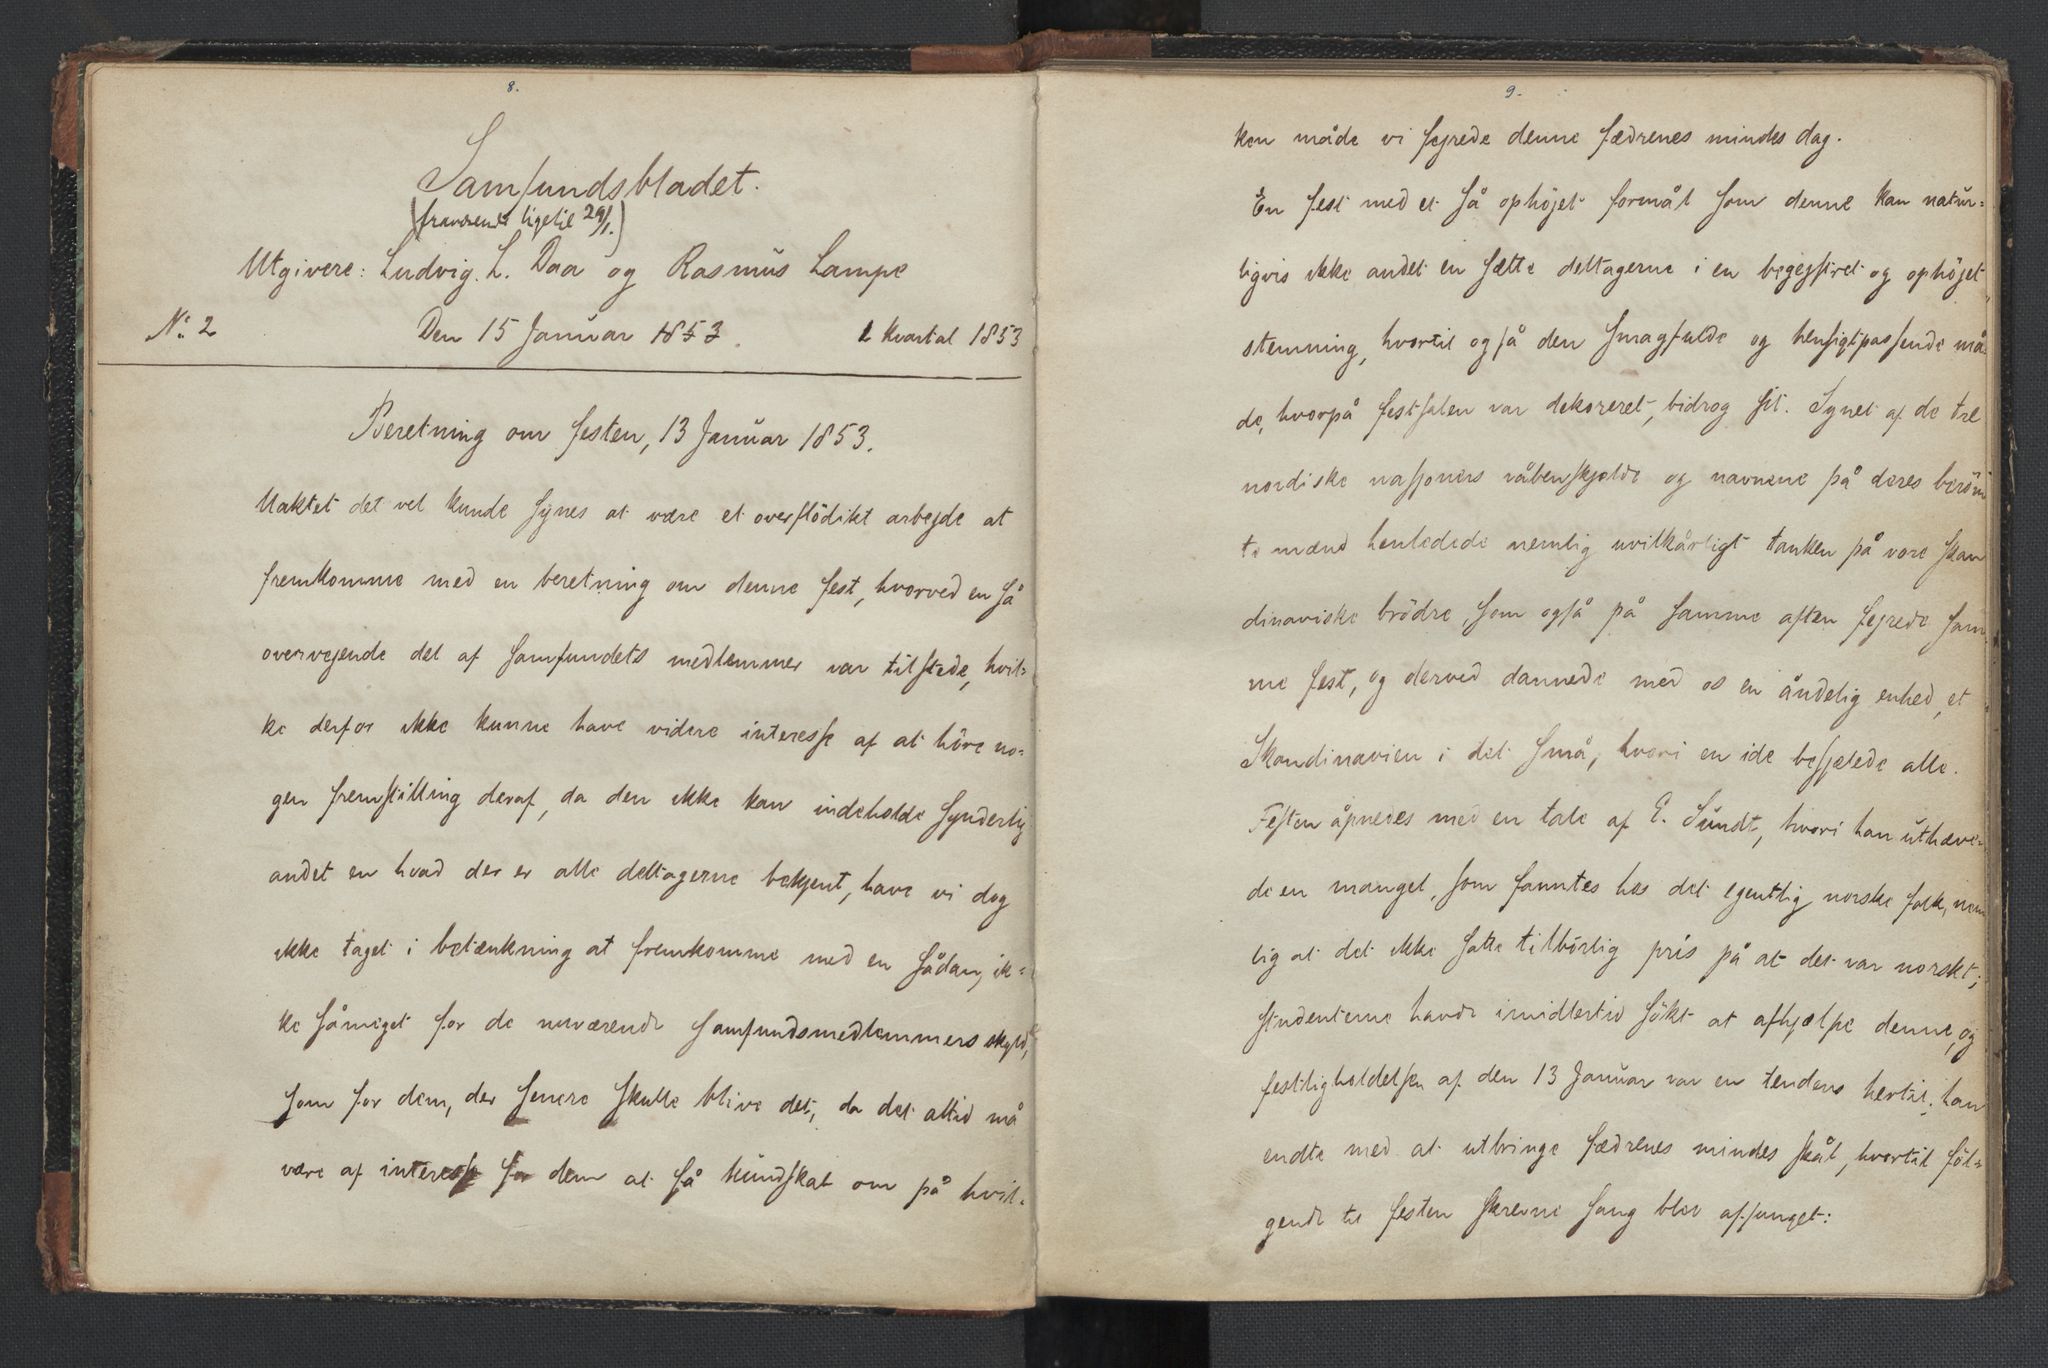 8.
Samfundsbladet.
(fraværende ligetil 29/1.)
Utgivere: Ludvig. L. Daa og Rasmus Lampe
No: 2 Den 15 Januar 1853. 1 kvartal 1853
Beretning om festen, 13 Januar 1853.
Uaktet det vel kunde synes at være et overflödikt arbejde at
fremkomme med en beretning om denne fest, hvorved en så
overvejende del af samfundets medlemmer var tilstede, hvil-
ke derfor ikke kunne have videre interesse af at höre no-
gen fremstilling deraf, da den ikke kan indeholde synderlig
andet en hvad der er alle deltagerne bekjent, have vi dog
ikke taget i betænkning at fremkomme med en sådan, ik-
ke såmeget for de nuværende samfundsmedlemmers skyld,
som for dem, der senere skulle blive det, da det altid må
være af interesse for dem at få kundskab om på hvil-
9.
ken måde vi fejrede denne fædrenes mindes dag.
En fest med et så ophöjet formål som denne kan natur-
ligvis ikke andet en sætte deltagerne i en begejstret og ophöjet
stemning, hvortil også den smagfulde og hensigtpassende må-
de, hvorpå festsalen var dekoreret, bidrog sit. Synet af de tre
nordiske nasjoners våbenskjolde og navnene på deres beröm
te mænd henledede nemlig uvilkårligt tanken på vore skan
dinaviske brödre, som også på samme aften fejrede sam-
me fest, og derved dannede med os en åndelig enhed, et
Skandinavien i det små, hvori en ide besjælede alle.
Festen åpnedes med en tale af E. Sundt, hvori han uthæve-
de en mangel, som fanntes hos det egentlig norske folk, nem
lig at det ikke satte tilbörlig pris på at det var norskt;
studenterne havde imidlertid sökt at afhjælpe denne, og
festligholdelsen af den 13 Januar var en tendens hertil; han
endte med at utbringe fædrenes mindes skål, hvortil föl-
gende til festen skrevne sang blev afsunget: